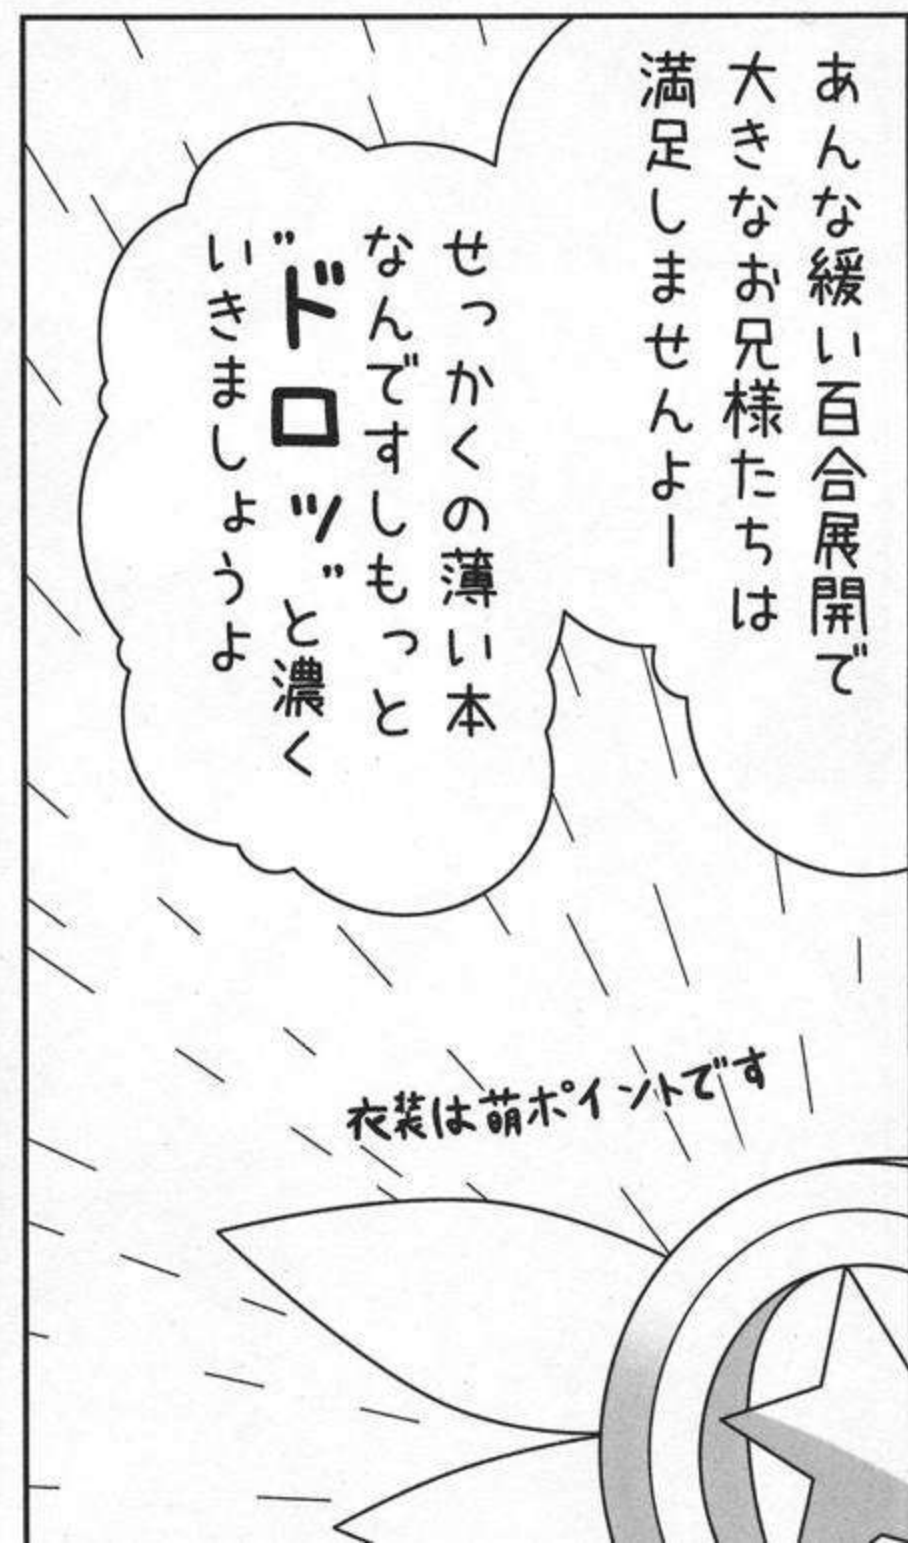 あんな緩い百合展開で
大きなお兄様たちは
満足しませんよー
せっかくの薄い本
なんですしもっと
"ドロッ"と濃く
いきましょうよ
衣装は萌ポイントです